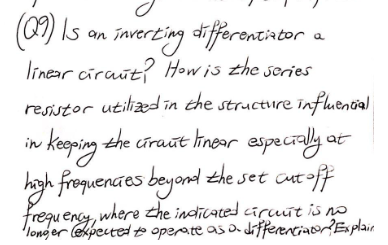 (Q9) Is an inverting differentiator a
linear circuit? How is the series
resistor utilized in the structure influential
in keeping the circuit linear especially at
high frequencies beyond the set cutoff
frequency, where the indicated circuit is no
longer expected to operate as a differentiator? Explain